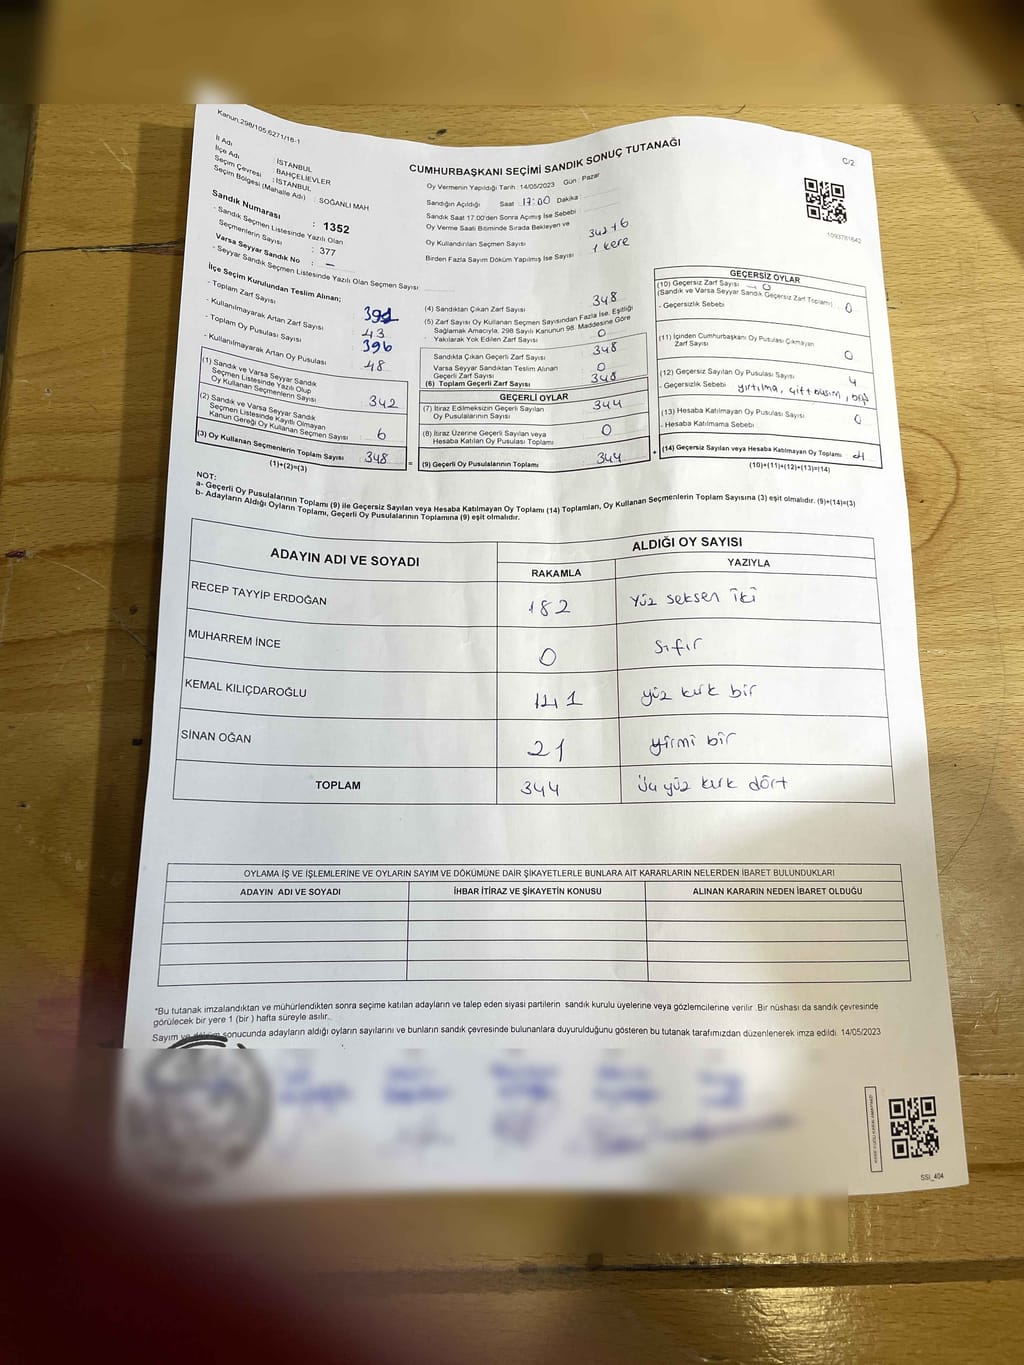 Kanun:298/105;6271/18-1
CUMHURBAŞKANI SEÇİMİ SANDIK SONUÇ TUTANAĞI
C/2
İl Adı : İSTANBUL
İlçe Adı : BAHÇELİEVLER
Seçim Çevresi : İSTANBUL
Seçim Bölgesi (Mahalle Adı) : SOĞANLI MAH
Sandık Numarası : 1352
- Sandık Seçmen Listesinde Yazılı Olan
Seçmenlerin Sayısı : 377
Varsa Seyyar Sandık No : –
- Seyyar Sandık Seçmen Listesinde Yazılı Olan Seçmen Sayısı :
Oy Vermenin Yapıldığı Tarih : 14/05/2023 Gün : Pazar
Sandığın Açıldığı Saat : 17:00 Dakika :
Sandık Saat 17.00'den Sonra Açılmış İse Sebebi :
Oy Verme Saati Bitiminde Sırada Bekleyen ve
Oy Kullandırılan Seçmen Sayısı : 342+6
Birden Fazla Sayım Döküm Yapılmış İse Sayısı : 1 kere
1093781642
İlçe Seçim Kurulundan Teslim Alınan;
- Toplam Zarf Sayısı : 391
- Kullanılmayarak Artan Zarf Sayısı : 43
- Toplam Oy Pusulası Sayısı : 396
- Kullanılmayarak Artan Oy Pusulası : 48
(1) Sandık ve Varsa Seyyar Sandık
Seçmen Listesinde Yazılı Olup
Oy Kullanan Seçmenlerin Sayısı : 342
(2) Sandık ve Varsa Seyyar Sandık
Seçmen Listesinde Kayıtlı Olmayan
Kanun Gereği Oy Kullanan Seçmen Sayısı : 6
(3) Oy Kullanan Seçmenlerin Toplam Sayısı : 348
(1)+(2)=(3)
(4) Sandıktan Çıkan Zarf Sayısı : 348
(5) Zarf Sayısı Oy Kullanan Seçmen Sayısından Fazla İse, Eşitliği
Sağlamak Amacıyla, 298 Sayılı Kanunun 98. Maddesine Göre
Yakılarak Yok Edilen Zarf Sayısı : 0
Sandıkta Çıkan Geçerli Zarf Sayısı : 348
Varsa Seyyar Sandıktan Teslim Alınan
Geçerli Zarf Sayısı : 0
(6) Toplam Geçerli Zarf Sayısı : 348
GEÇERLİ OYLAR
(7) İtiraz Edilmeksizin Geçerli Sayılan
Oy Pusulalarının Sayısı : 344
(8) İtiraz Üzerine Geçerli Sayılan veya
Hesaba Katılan Oy Pusulası Toplamı : 0
= (9) Geçerli Oy Pusulalarının Toplamı : 344
GEÇERSİZ OYLAR
(10) Geçersiz Zarf Sayısı – 0
(Sandık ve Varsa Seyyar Sandık Geçersiz Zarf Toplamı) : 0
- Geçersizlik Sebebi :
(11) İçinden Cumhurbaşkanı Oy Pusulası Çıkmayan
Zarf Sayısı : 0
(12) Geçersiz Sayılan Oy Pusulası Sayısı : 4
- Geçersizlik Sebebi : yırtılma, çift basım,
(13) Hesaba Katılmayan Oy Pusulası Sayısı : 0
- Hesaba Katılmama Sebebi :
+ (14) Geçersiz Sayılan veya Hesaba Katılmayan Oy Toplamı : 4
(10)+(11)+(12)+(13)=(14)
NOT:
a- Geçerli Oy Pusulalarının Toplamı (9) ile Geçersiz Sayılan veya Hesaba Katılmayan Oy Toplamı (14) Toplamları, Oy Kullanan Seçmenlerin Toplam Sayısına (3) eşit olmalıdır. (9)+(14)=(3)
b- Adayların Aldığı Oyların Toplamı, Geçerli Oy Pusulalarının Toplamına (9) eşit olmalıdır.
ADAYIN ADI VE SOYADI ALDIĞI OY SAYISI
RAKAMLA YAZIYLA
RECEP TAYYİP ERDOĞAN 182 Yüz seksen iki
MUHARREM İNCE 0 Sıfır
KEMAL KILIÇDAROĞLU 141 yüz kırk bir
SİNAN OĞAN 21 yirmi bir
TOPLAM 344 Üç yüz kırk dört
OYLAMA İŞ VE İŞLEMLERİNE VE OYLARIN SAYIM VE DÖKÜMÜNE DAİR ŞİKAYETLERLE BUNLARA AİT KARARLARIN NELERDEN İBARET BULUNDUKLARI
ADAYIN ADI VE SOYADI İHBAR İTİRAZ VE ŞİKAYETİN KONUSU ALINAN KARARIN NEDEN İBARET OLDUĞU
*Bu tutanak imzalandıktan ve mühürlendikten sonra seçime katılan adayların ve talep eden siyasi partilerin sandık kurulu üyelerine veya gözlemcilerine verilir .Bir nüshası da sandık çevresinde
görülecek bir yere 1 (bir) hafta süreyle asılır.
Sayım ve döküm sonucunda adayların aldığı oyların sayılarını ve bunların sandık çevresinde bulunanlara duyurulduğunu gösteren bu tutanak tarafımızdan düzenlenerek imza edildi. 14/05/2023
SSİ_404